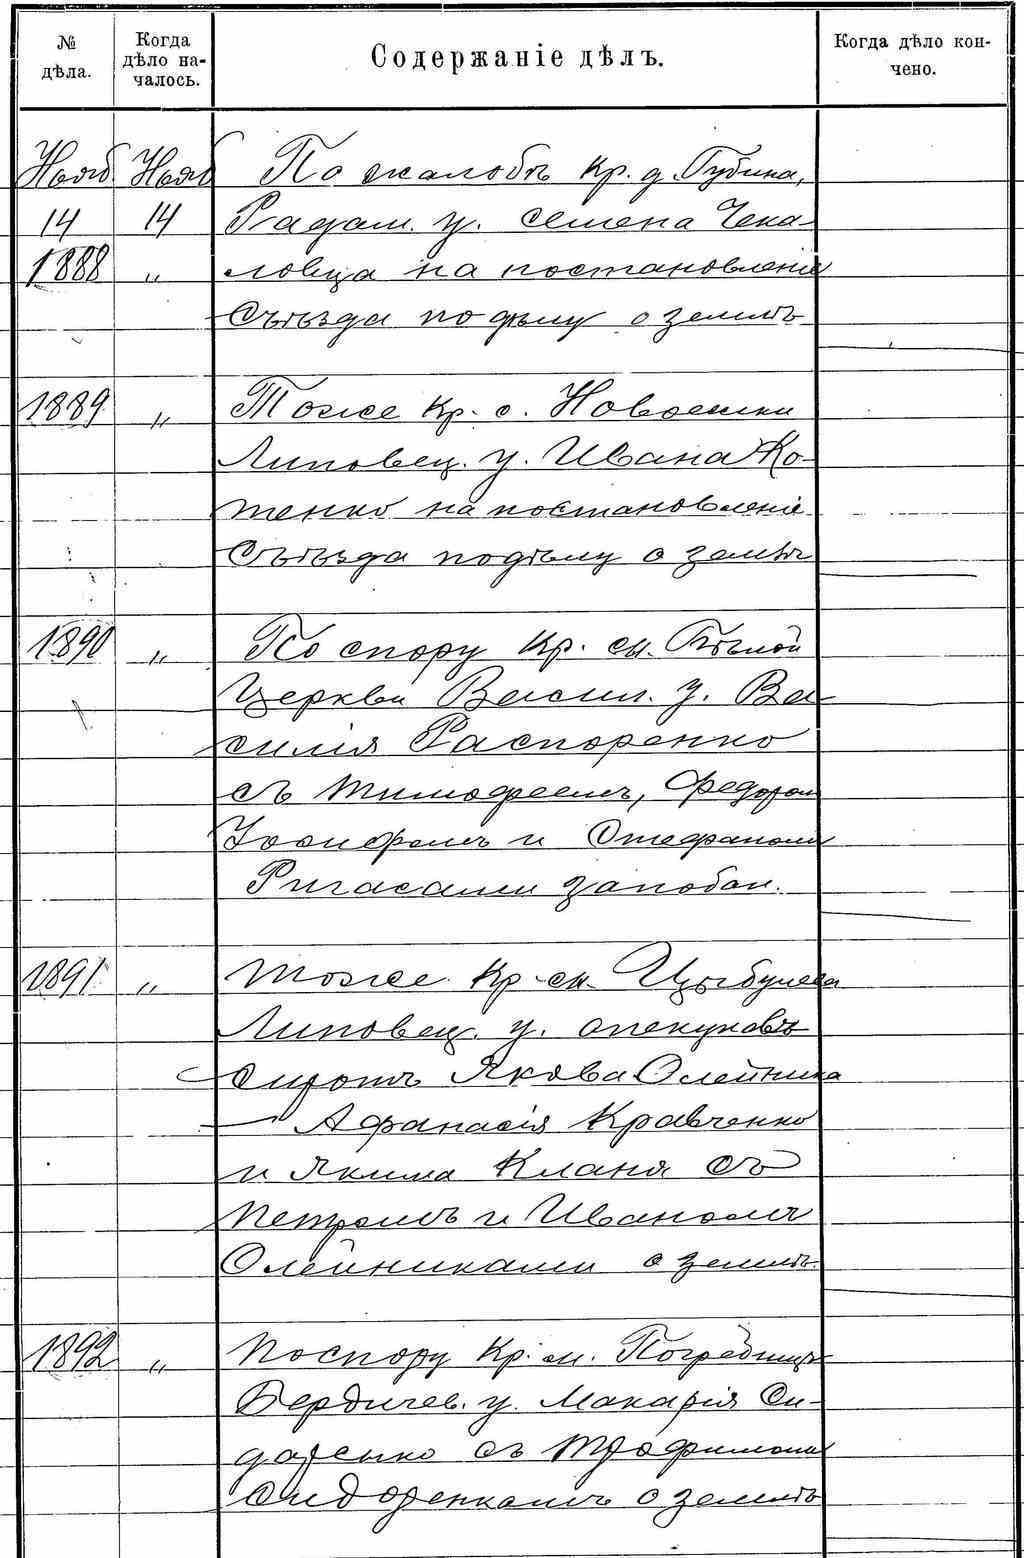 № дѣла.
Когда дѣло на-
чалось.
Содержаніе дѣлъ.
Когда дѣло кон-
чено.
Нояб Нояб По жалобѣ кр. д. Губина,
14 14 Радом. у. Семена Чека-
1888 " ловца на постановленіе
Съѣзда по дѣлу о землѣ
1889 " Тоже кр. с.
Липовец. у. Ивана Ко-
тенко на постановленіе
Съѣзда по дѣлу о землѣ
1890 " По спору кр. м. Бѣлой
Церкви Васил. у. Ва-
силія Распоренко
съ Тимофеемъ, Федором
Іосифомъ и Стефаномъ
Ригасами
1891 " Тоже кр. м. Цыбулева
Липовец. у. опекуновъ
сиротъ Якова Олейника
— Афанасія Кравченко
и Якима Кланя съ
Петромъ и Иваномъ
Олейниками о землѣ.
1892 " По спору кр. м. Погребищъ
Бердичев. у. Макарія Си-
доренко съ Трофимомъ
Сидоренкомъ о землѣ